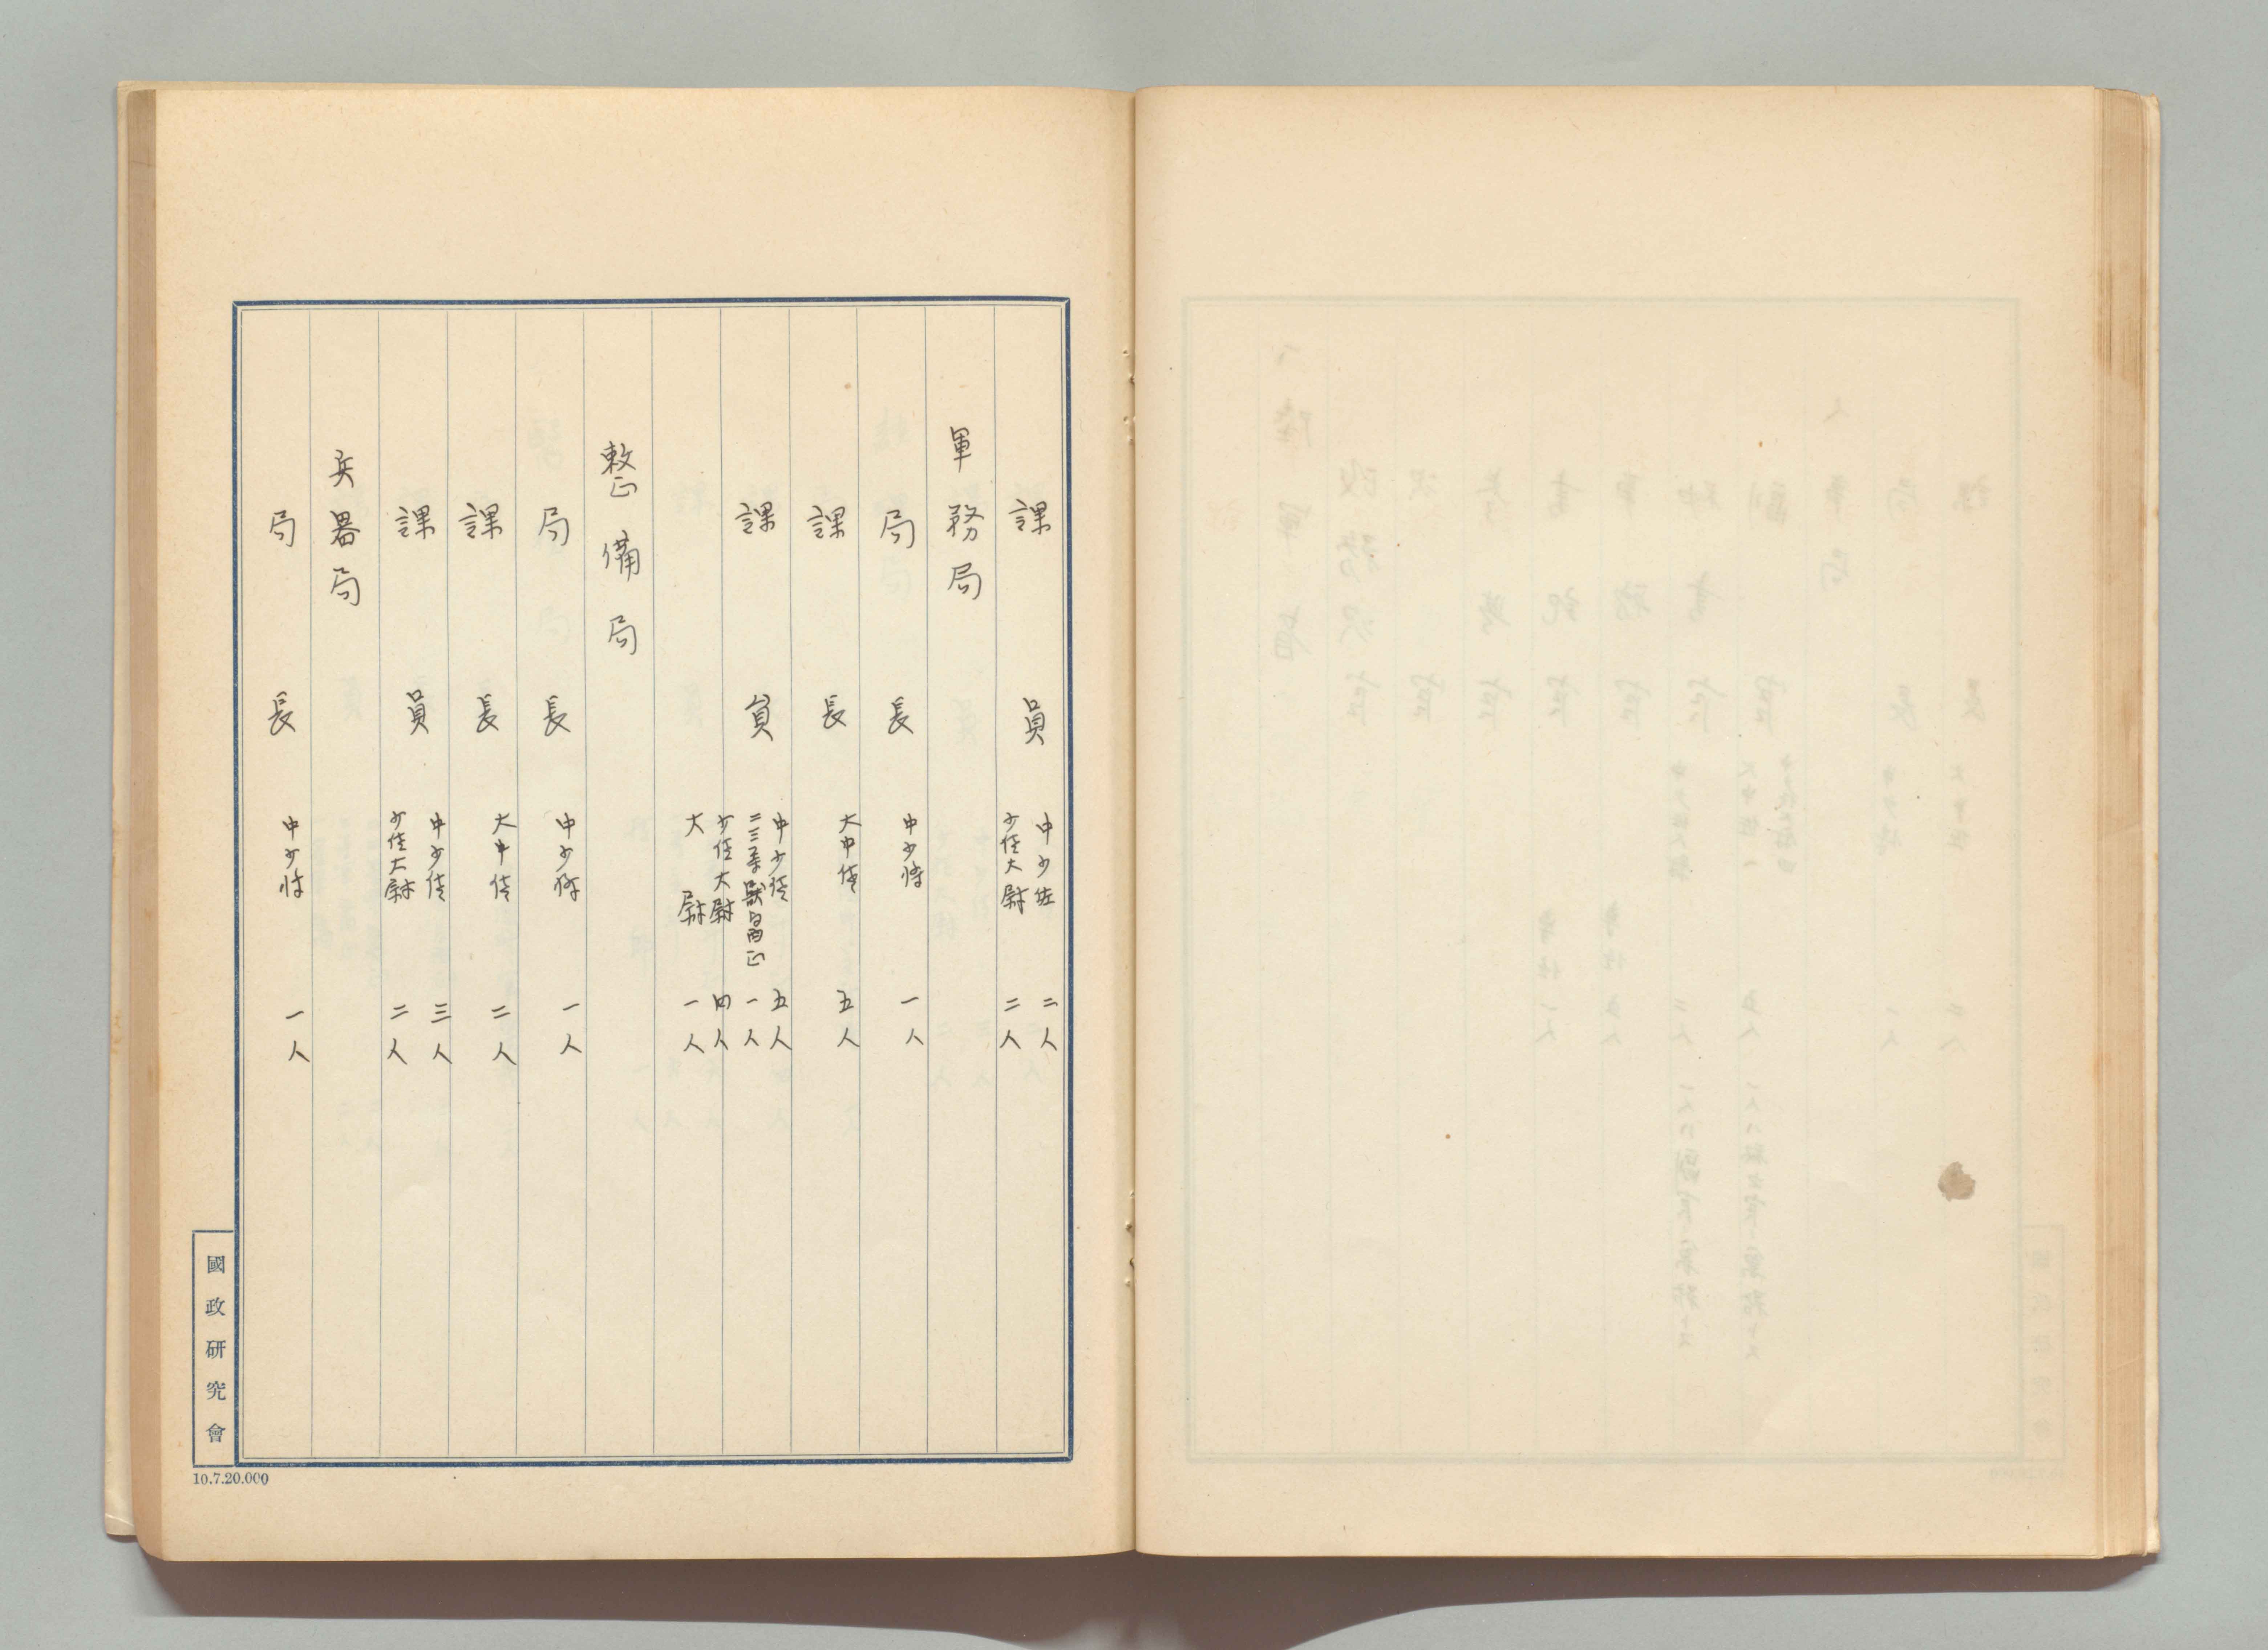 課員 中少佐 二人
少佐大尉 二人
軍務局
局長 中少将 一人
課長 大中佐 五人
課員 中少佐 五人
二三等獣医正 一人
少佐大尉 四人
大尉 一人
整備局
局長 中少将 一人
課長 大中佐 二人
課員 中少佐 三人
少佐大尉 二人
兵器局
局長 中少将 一人
國政研究會
10.7.20.000